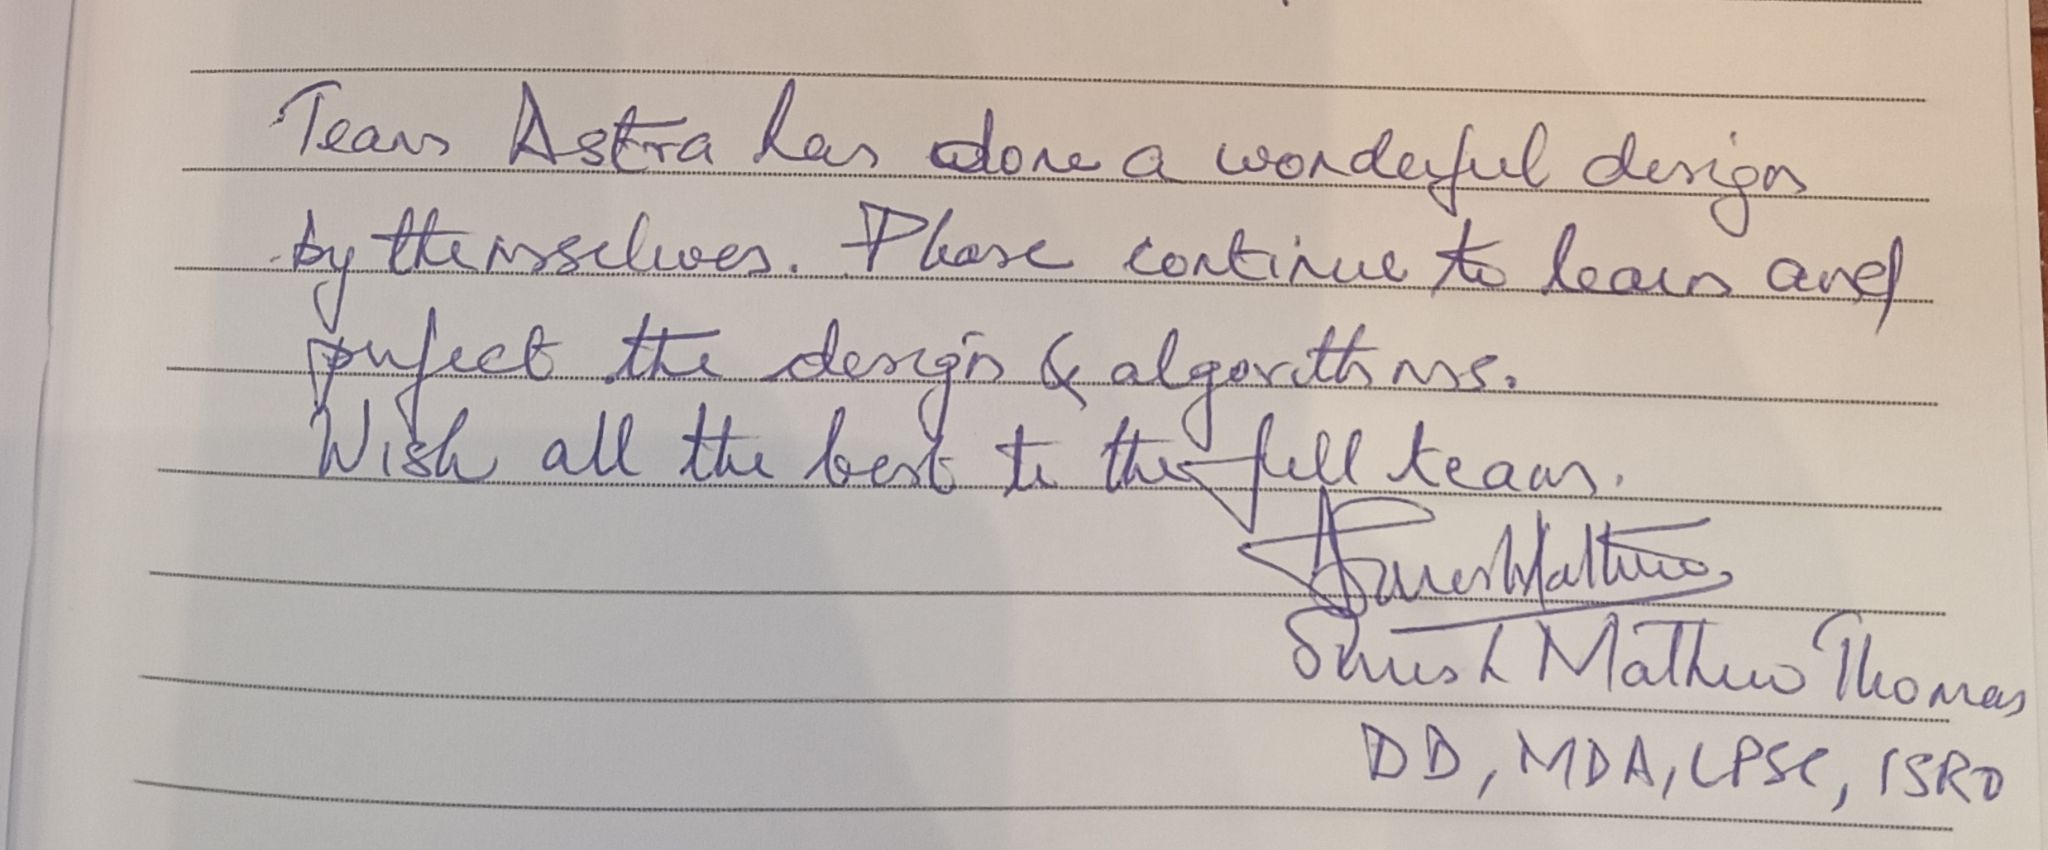 Team Astra has done a wonderful design
by themselves. Please continue to learn and
perfect the design & algorithms.
Wish all the best to the full team.
Suresh Mathew Thomas
DD, MDA, LPSC, ISRO